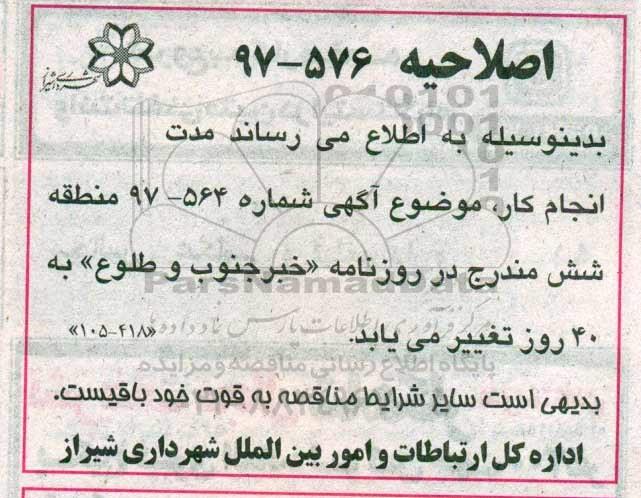 اصلاحیه ۵۷۶-۹۷
شهرداری شیراز
بدینوسیله به اطلاع می رساند مدت
انجام کار، موضوع آگهی شماره ۵۶۴- ۹۷ منطقه
شش مندرج در روزنامه «خبرجنوب و طلوع» به
۴۰ روز تغییر می یابد. «۴۱۸-۱۰۵»
بدیهی است سایر شرایط مناقصه به قوت خود باقیست.
اداره کل ارتباطات و امور بین الملل شهرداری شیراز
ParsNamadData
مرکز فرآوری اطلاعات پارس نماد داده ها
پایگاه اطلاع رسانی مناقصه و مزایده